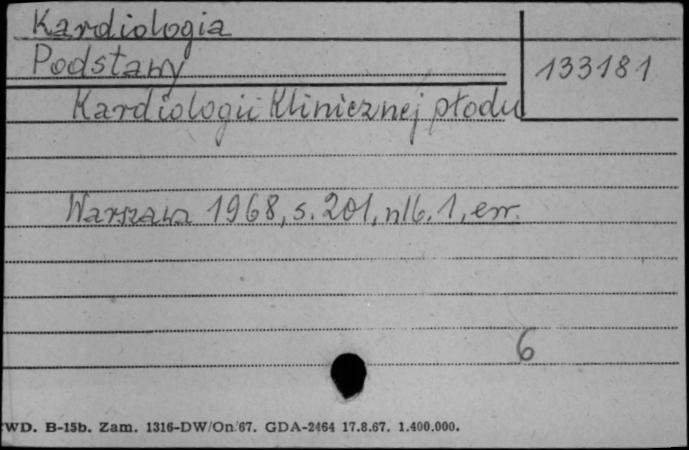 Kardiologia
Podstawy
133181
Kardiologii Klinicznej płodu
Warszawa 1968, s. 201, nlb. 1, err.
6
WD. B-15b. Zam. 1316-DW/On/67. GDA-2464 17.8.67. 1.400.000.